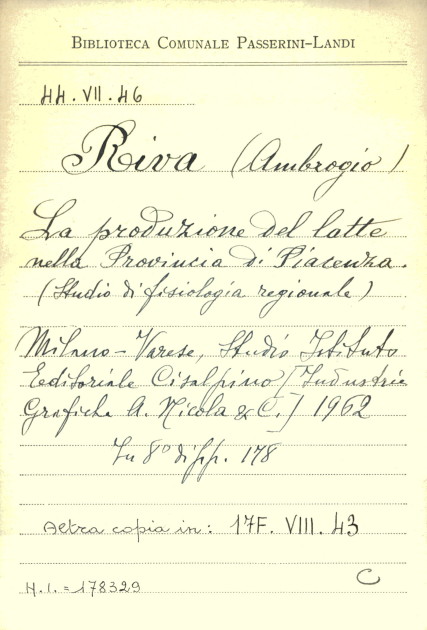 BIBLIOTECA COMUNALE PASSERINI-LANDI
44.VII.46
Riva (Ambrogio)
La produzione del latte
nella Provincia di Piacenza.
(Studio di fisiologia regionale)
Milano-Varese, Studio Istituto
Editoriale Cisalpino [Industrie
Grafiche A. Nicola & C.] 1962
In 8° di pp. 178
Altra copia in: 17F. VIII. 43
C
N.I. = 178329